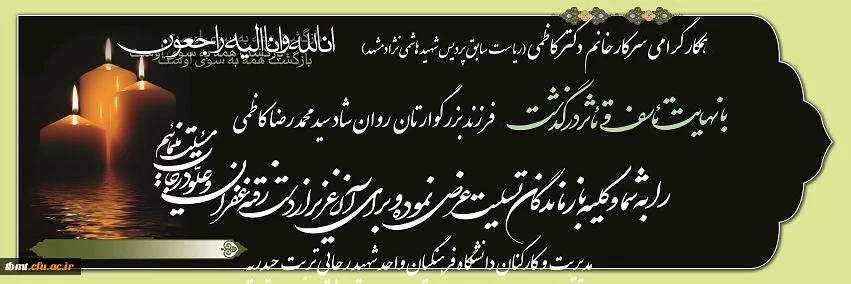 انالله و انا الیه راجعون
بازگشت همه به سوی اوست
همکار گرامی سرکار خانم دکتر کاظمی (ریاست سابق پردیس شهید هاشمی نژاد مشهد)
با نهایت تاسف و تاثر درگذشت فرزند بزرگوارتان روان شاد سید محمد رضا کاظمی
را به شما و کلیه بازماندگان تسلیت عرض نموده و برای آن عزیز از دست رفته غفران و علو درجات مسئلت می نمائیم
مدیریت و کارکنان دانشگاه فرهنگیان واحد شهید رجایی تربت حیدریه
tbmt.cfu.ac.ir